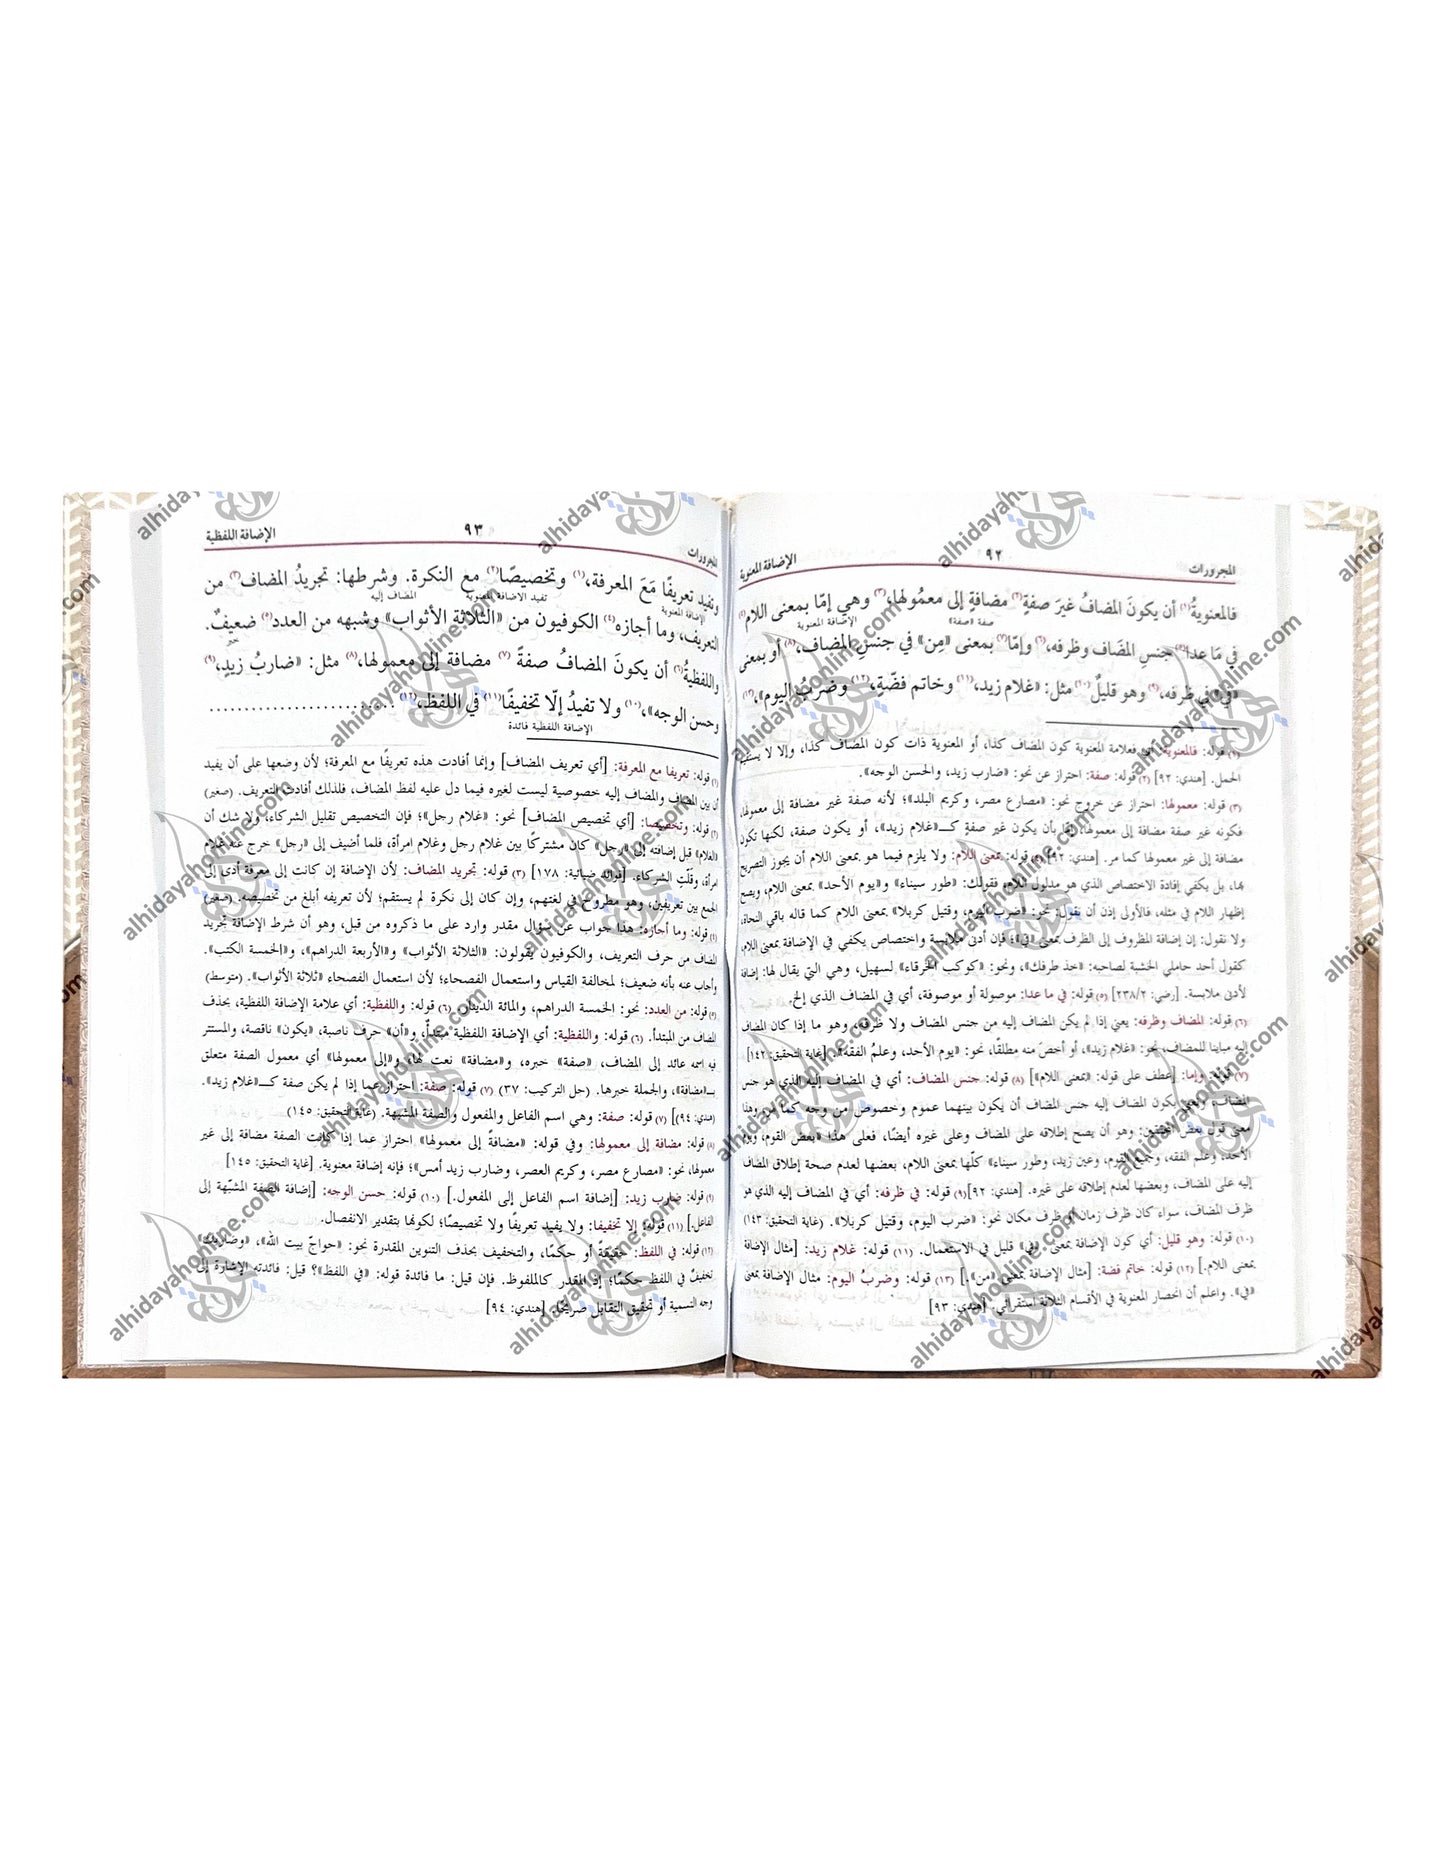 المجرورات ٩٢ الإضافة المعنوية
فالمعنويةُ(١) أن يكونَ المضافُ غيرَ صفةٍ(٢) مضافةٍ إلى معمُولها،(٣) وهي إمّا بمعنى اللام(٤)
صفة «صفة» الإضافة المعنوية
في مَا عدا(٥) جنسِ المضَاف وظرفه،(٦) وإمّا(٧) بمعنى «مِن» في جنسِ المضاف،(٨) أو بمعنى
«في» في ظرفه،(٩) وهو قليلٌ(١٠) مثل: «غلام زيد،(١١) وخاتم فضّةٍ،(١٢) وضربُ اليوم»،(١٣)
(١) قوله: فالمعنوية: أي فعلامة المعنوية كون المضاف كذا، أو المعنوية ذات كون المضاف كذا، وإلا لا يستقيم
الحمل. [هندي: ٩٢] (٢) قوله: صفة: احتراز عن نحو: «ضارب زيد، والحسن الوجه».
(٣) قوله: معمولها: احتراز عن خروج نحو: «مصارع مصر، وكريم البلد»؛ لأنه صفة غير مضافة إلى معمولها،
فكونه غير صفة مضافة إلى معمولها، إمّا بأن يكون غير صفةٍ كـ«غلام زيد»، أو يكون صفة، لكنها تكون
مضافة إلى غير معمولها كما مر. [هندي: ٩٢] (٤) قوله: بمعنى اللام: ولا يلزم فيما هو بمعنى اللام أن يجوز التصريح
بها، بل يكفي إفادة الاختصاص الذي هو مدلول اللام، فقولك: «طور سيناء» و«يوم الأحد» بمعنى اللام، ويصح
إظهار اللام في مثله، فالأولى إذن أن نقول: نحو: «ضرب اليوم، وقتيل كربلا» بمعنى اللام كما قاله باقي النحاة،
ولا نقول: إن إضافة المظروف إلى الظرف بمعنى «في»؛ فإن أدنى ملابسة واختصاص يكفي في الإضافة بمعنى اللام،
كقول أحد حاملي الخشبة لصاحبه: «خذ طرفك»، ونحو: «كوكب الخرقاء» لسهيل، وهي التي يقال لها: إضافة
لأدنى ملابسة. [رضي: ٢٣٨/٢] (٥) قوله: في ما عدا: موصولة أو موصوفة، أي في المضاف الذي إلخ.
(٦) قوله: المضاف وظرفه: يعني إذا لم يكن المضاف إليه من جنس المضاف ولا ظرفه، وهو ما إذا كان المضاف
إليه مباينا للمضاف، نحو: «غلام زيد»، أو أخصّ منه مطلقًا، نحو: «يوم الأحد، وعلمُ الفقه». [غاية التحقيق: ١٤٢]
(٧) قوله: وإما: [عطف على قوله: «بمعنى اللام»] (٨) قوله: جنس المضاف: أي في المضاف إليه الذي هو جنس
المضاف، ومعنى يكون المضاف إليه جنس المضاف أن يكون بينهما عموم وخصوص من وجه كما مر وهذا
معنى قول بعض المحققين: وهو أن يصح إطلاقه على المضاف وعلى غيره أيضًا، فعلى هذا «بعض القوم، ويوم
الأحد، وعلم الفقه، وجميع القوم، وعين زيد، وطور سيناء» كلّها بمعنى اللام، بعضها لعدم صحة إطلاق المضاف
إليه على المضاف، وبعضها لعدم إطلاقه على غيره. [هندي: ٩٢] (٩) قوله: في ظرفه: أي في المضاف إليه الذي هو
ظرف المضاف، سواء كان ظرف زمان أو ظرف مكان نحو: «ضرب اليوم، وقتيل كربلا». (غاية التحقيق: ١٤٣)
(١٠) قوله: وهو قليل: أي كون الإضافة بمعنى «في» قليل في الاستعمال. (١١) قوله: غلام زيد: [مثال الإضافة
بمعنى اللام.] (١٢) قوله: خاتم فضة: [مثال الإضافة بمعنى «من».] (١٣) قوله: وضربُ اليوم: مثال الإضافة بمعنى
«في». واعلم أن انحصار المعنوية في الأقسام الثلاثة استقرائي. [هندي: ٩٣]
المجرورات ٩٣ الإضافة اللفظية
وتفيد تعريفًا مَعَ المعرفة،(١) وتخصيصًا(٢) مع النكرة. وشرطها: تجريدُ المضاف(٣) من
الإضافة المعنوية تفيد الاضافة المعنوية المضاف إليه
التعريف، وما أجازه(٤) الكوفيون من «الثلاثةِ الأثواب» وشبهه من العدد(٥) ضعيفٌ.
خبر
واللفظيةُ(٦) أن يكونَ المضافُ صفةً(٧) مضافة إلى معمولها،(٨) مثل: «ضاربُ زيدٍ،(٩)
وحسن الوجه»،(١٠) ولا تفيدُ إلّا تخفيفًا(١١) في اللفظ،(١٢) ..........................
الإضافة اللفظية فائدة
(١) قوله: تعريفا مع المعرفة: [أي تعريف المضاف] وإنما أفادت هذه تعريفًا مع المعرفة؛ لأن وضعها على أن يفيد
أن بين المضاف والمضاف إليه خصوصية ليست لغيره فيما دل عليه لفظ المضاف، فلذلك أفادت التعريف. (صغير)
(٢) قوله: وتخصيصا: [أي تخصيص المضاف] نحو: «غلام رجل»؛ فإن التخصيص تقليل الشركاء، ولا شك أن
«الغلام» قبل إضافته إلى «رجل» كان مشتركًا بين غلام رجل وغلام امرأة، فلما أضيف إلى «رجل» خرج عنه غلام
امرأة، وقلّتِ الشركاء. [فوائد ضيائية: ١٧٨] (٣) قوله: تجريد المضاف: لأن الإضافة إن كانت إلى معرفة أدى إلى
الجمع بين تعريفين، وهو مطروح في لغتهم، وإن كان إلى نكرة لم يستقم؛ لأن تعريفه أبلغ من تخصيصه. (صغير)
(٤) قوله: وما أجازه: هذا جواب عن سؤال مقدر وارد على ما ذكروه من قبل، وهو أن شرط الإضافة تجريد
المضاف من حرف التعريف، والكوفيون يقولون: «الثلاثة الأثواب» و«الأربعة الدراهم»، و«الخمسة الكتب».
وأجاب عنه بأنه ضعيف؛ لمخالفة القياس واستعمال الفصحاء؛ لأن استعمال الفصحاء «ثلاثة الأثواب». (متوسط)
(٥) قوله: من العدد: نحو: الخمسة الدراهم، والمائة الدينار. (٦) قوله: واللفظية: أي علامة الإضافة اللفظية، بحذف
المضاف من المبتدأ. (٦) قوله: واللفظية: أي الإضافة اللفظية مبتدأٌ، و«أن» حرف ناصبة، «يكون» ناقصة، والمستتر
فيه اسمه عائد إلى المضاف، «صفة» خبره، و«مضافة» نعت لها، و«إلى معمولها» أي معمول الصفة متعلق
بـ«مضافة»، والجملة خبرها. (حل التركيب: ٣٧) (٧) قوله: صفة: احتراز عما إذا لم يكن صفة كـ«غلام زيد».
[هندي: ٩٤] (٧) قوله: صفة: وهي اسم الفاعل والمفعول والصفة المشبهة. (غاية التحقيق: ١٤٥)
(٨) قوله: مضافة إلى معمولها: وفي قوله: «مضافة إلى معمولها» احتراز عما إذا كانت الصفة مضافة إلى غير
معمولها، نحو: «مصارع مصر، وكريم العصر، وضارب زيد أمس»؛ فإنه إضافة معنوية. [غاية التحقيق: ١٤٥]
(٩) قوله: ضارب زيد: [إضافة اسم الفاعل إلى المفعول.] (١٠) قوله: حسن الوجه: [إضافة الصفة المشبّهة إلى
الفاعل.] (١١) قوله: إلا تخفيفا: ولا يفيد تعريفًا ولا تخصيصًا؛ لكونها بتقدير الانفصال.
(١٢) قوله: في اللفظ: حقيقةً أو حكمًا، والتخفيف بحذف التنوين المقدرة نحو: «حواجّ بيت الله»، «وضاربك»
تخفيفٌ في اللفظ حكمًا؛ إذ المقدر كالملفوظ. فإن قيل: ما فائدة قوله: «في اللفظ»؟ قيل: فائدته الإشارة إلى
وجه التسمية أو تحقيق التقابل صريحًا. [هندي: ٩٤]
alhidayahonline.com